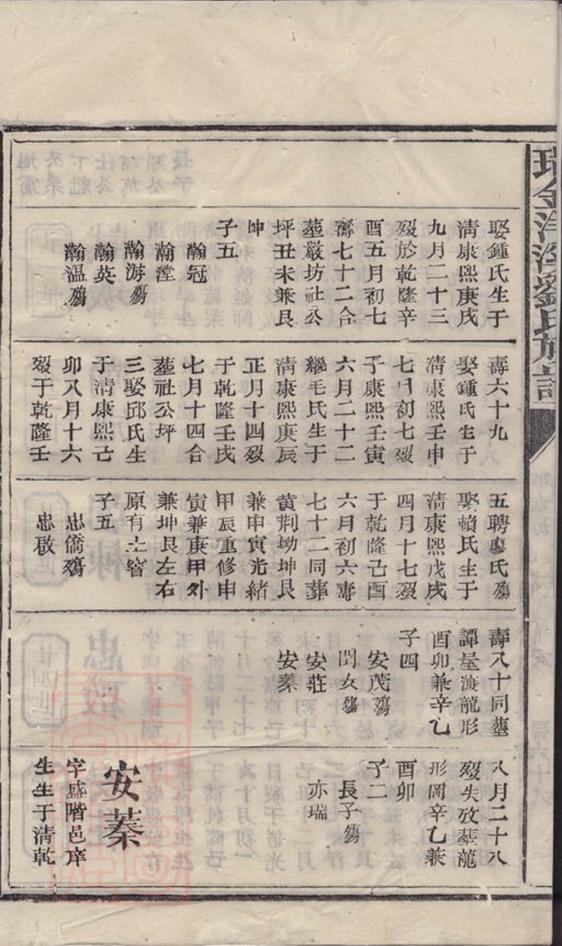 娶鍾氏生于
淸康熙庚戌
九月二十三
歿於乾隆辛
酉五月初七
壽七十二合
塟嚴坊社公
坪丑未兼艮
坤
子五
瀚冠
瀚瀅
瀚游殤
瀚英
瀚溫殤
壽六十九
娶鍾氏生于
淸康熙壬申
七月初七歿
于康熙壬寅
六月二十二
繼毛氏生于
淸康熙庚辰
正月十四歿
于乾隆壬戌
七月十四合
塟社公坪
三娶邱氏生
于淸康熙己
卯八月十六
歿于乾隆壬
五聘廖氏殤
娶賴氏生于
淸康熙戊戌
四月十七歿
于乾隆己酉
六月初六壽
七十二同塟
黃荆坳坤艮
兼申寅光緒
甲辰重修申
寅兼庚甲外
兼坤艮左右
原有土窖
子五
忠僑殤
忠啟
壽八十同塟
譚屋渡龍形
酉卯兼辛乙
子四
安茂殤
閏女殤
安莊
安蓁
八月二十八
歿失攷塟龍
形岡辛乙兼
酉卯
子二
長子殤
亦瑞
安蓁
字盛階邑庠
生生于淸乾